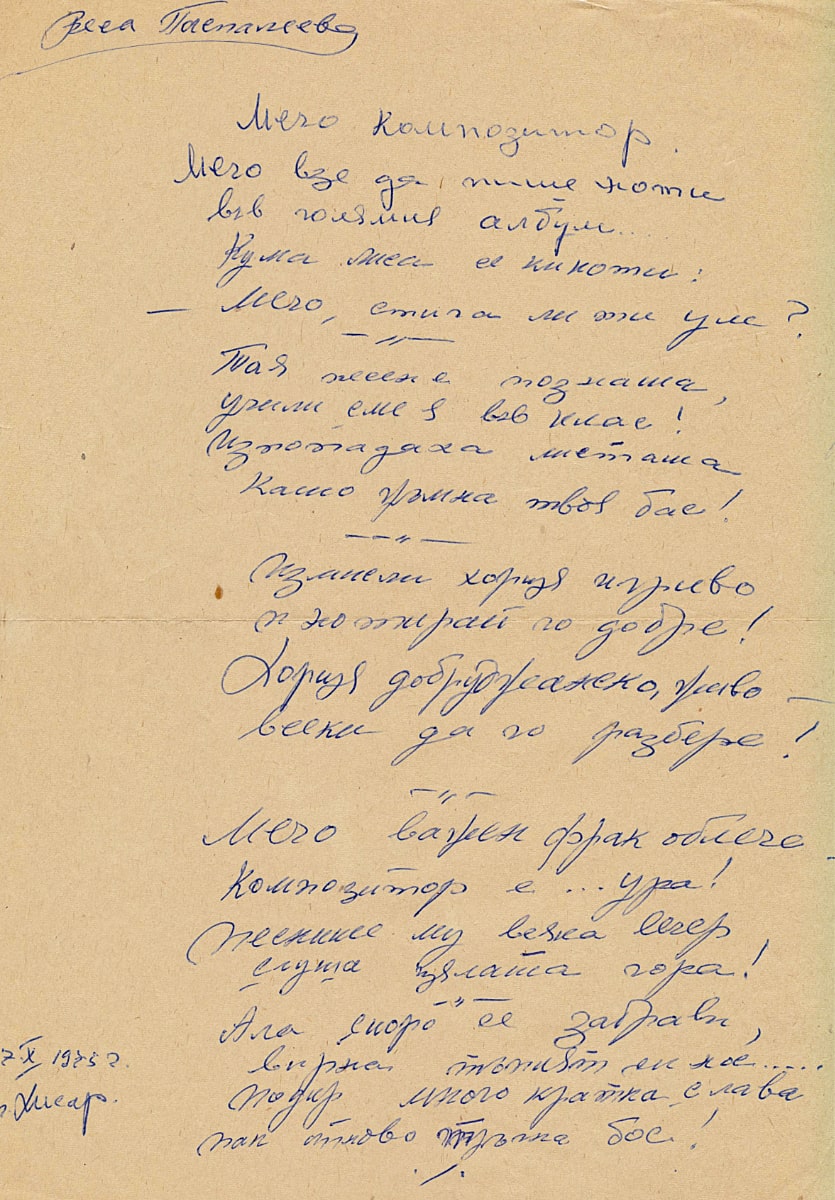 Веса Паспалеева
Мечо композитор.
Мечо взе да пише ноти
във големия албум...
Кума лиса се кикоти:
— Мечо, стига ли ти ум?
— " —
Тая песен е позната,
учили сме я във клас!
Изпопадаха листата
като гръмна твоя бас!
— " —
Измисли хорце игриво
и нотирай го добре!
Хорце добруджанско, живо —
всеки да го разбере!
— " —
Мечо важен фрак облече
Композитор е ... ура!
Песните му всяка вечер
слуша цялата гора!
— " —
Ала скоро се забрави,
вирна тъпият си нос.....
подир много кратка слава
пак отново тръгна бос!
7 X 1975 г.
г. Хисар.